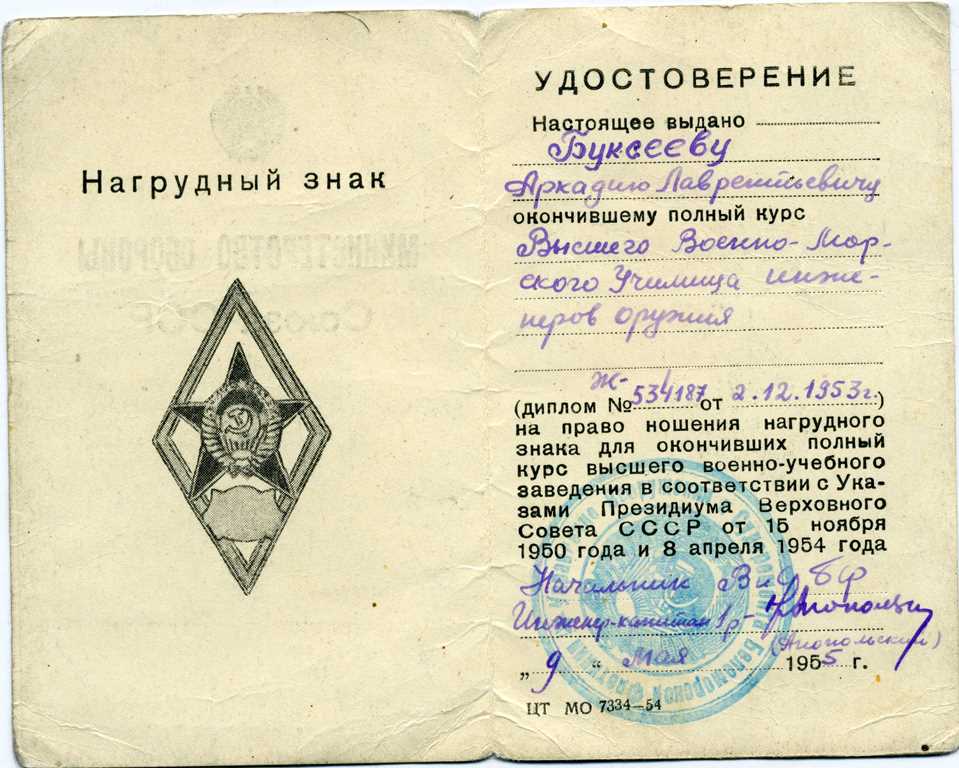 Нагрудный знак
УДОСТОВЕРЕНИЕ
Настоящее выдано
Буксееву
Аркадию Лаврентьевичу
окончившему полный курс
Высшего Военно-Мор-
ского Училища инже-
неров оружия
Ж-
(диплом № 534187 от 2.12.1953г.)
на право ношения нагрудного
знака для окончивших полный
курс высшего военно-учебного
заведения в соответствии с Ука-
зами Президиума Верховного
Совета СССР от 15 ноября
1950 года и 8 апреля 1954 года
Начальник БФ
Инженер-капитан 1р-
(Апопольский)
„9“ мая 1955 г.
ЦТ МО 7334—54